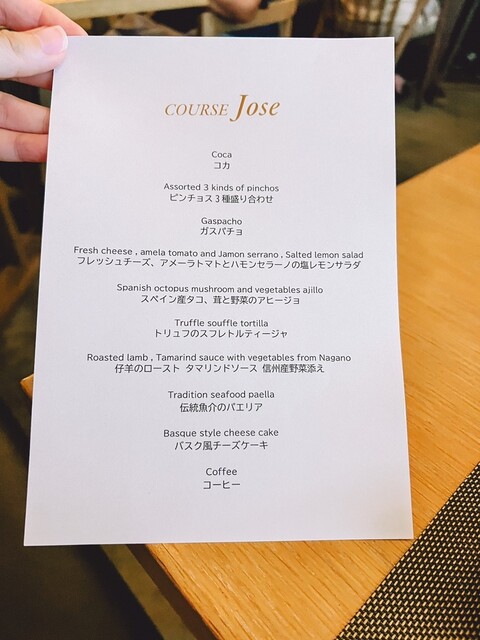 COURSE Jose
Coca
コカ
Assorted 3 kinds of pinchos
ピンチョス3種盛り合わせ
Gaspacho
ガスパチョ
Fresh cheese , amela tomato and Jamon serrano , Salted lemon salad
フレッシュチーズ、アメーラトマトとハモンセラーノの塩レモンサラダ
Spanish octopus mushroom and vegetables ajillo
スペイン産タコ、茸と野菜のアヒージョ
Truffle souffle tortilla
トリュフのスフレトルティージャ
Roasted lamb , Tamarind sauce with vegetables from Nagano
仔羊のロースト タマリンドソース 信州産野菜添え
Tradition seafood paella
伝統魚介のパエリア
Basque style cheese cake
バスク風チーズケーキ
Coffee
コーヒー